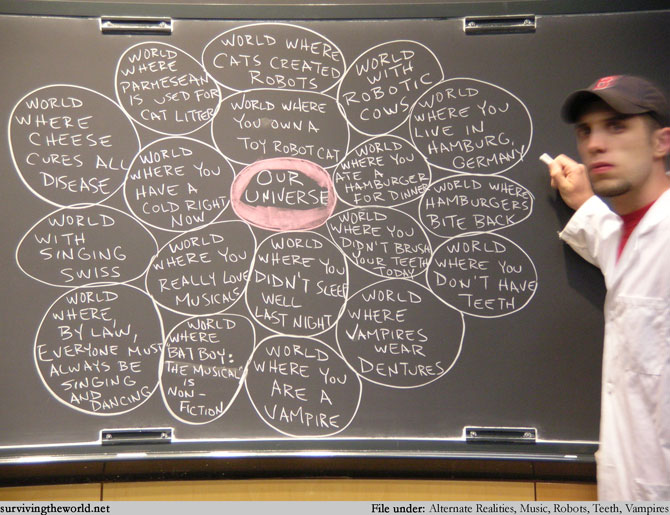 WORLD
WHERE
PARMESEAN
IS USED FOR
CAT LITTER
WORLD WHERE
CATS CREATED
ROBOTS
WORLD
WITH
ROBOTIC
COWS
WORLD
WHERE
CHEESE
CURES ALL
DISEASE
WORLD WHERE
YOU OWN A
TOY ROBOT CAT
WORLD
WHERE YOU
LIVE IN
HAMBURG,
GERMANY
WORLD
WHERE YOU
HAVE A
COLD RIGHT
NOW
OUR
UNIVERSE
WORLD
WHERE YOU
ATE A
HAMBURGER
FOR DINNER
WORLD WHERE
HAMBURGERS
BITE BACK
WORLD
WITH
SINGING
SWISS
WORLD
WHERE YOU
REALLY LOVE
MUSICALS
WORLD
WHERE YOU
DIDN'T SLEEP
WELL
LAST NIGHT
WORLD
WHERE YOU
DIDN'T BRUSH
YOUR TEETH
TODAY
WORLD
WHERE YOU
DON'T HAVE
TEETH
WORLD
WHERE,
BY LAW,
EVERYONE MUST
ALWAYS BE
SINGING
AND
DANCING
WORLD
WHERE
BAT BOY:
THE MUSICAL
IS
NON-
FICTION
WORLD
WHERE YOU
ARE A
VAMPIRE
WORLD
WHERE
VAMPIRES
WEAR
DENTURES
survivingtheworld.net
File under: Alternate Realities, Music, Robots, Teeth, Vampires